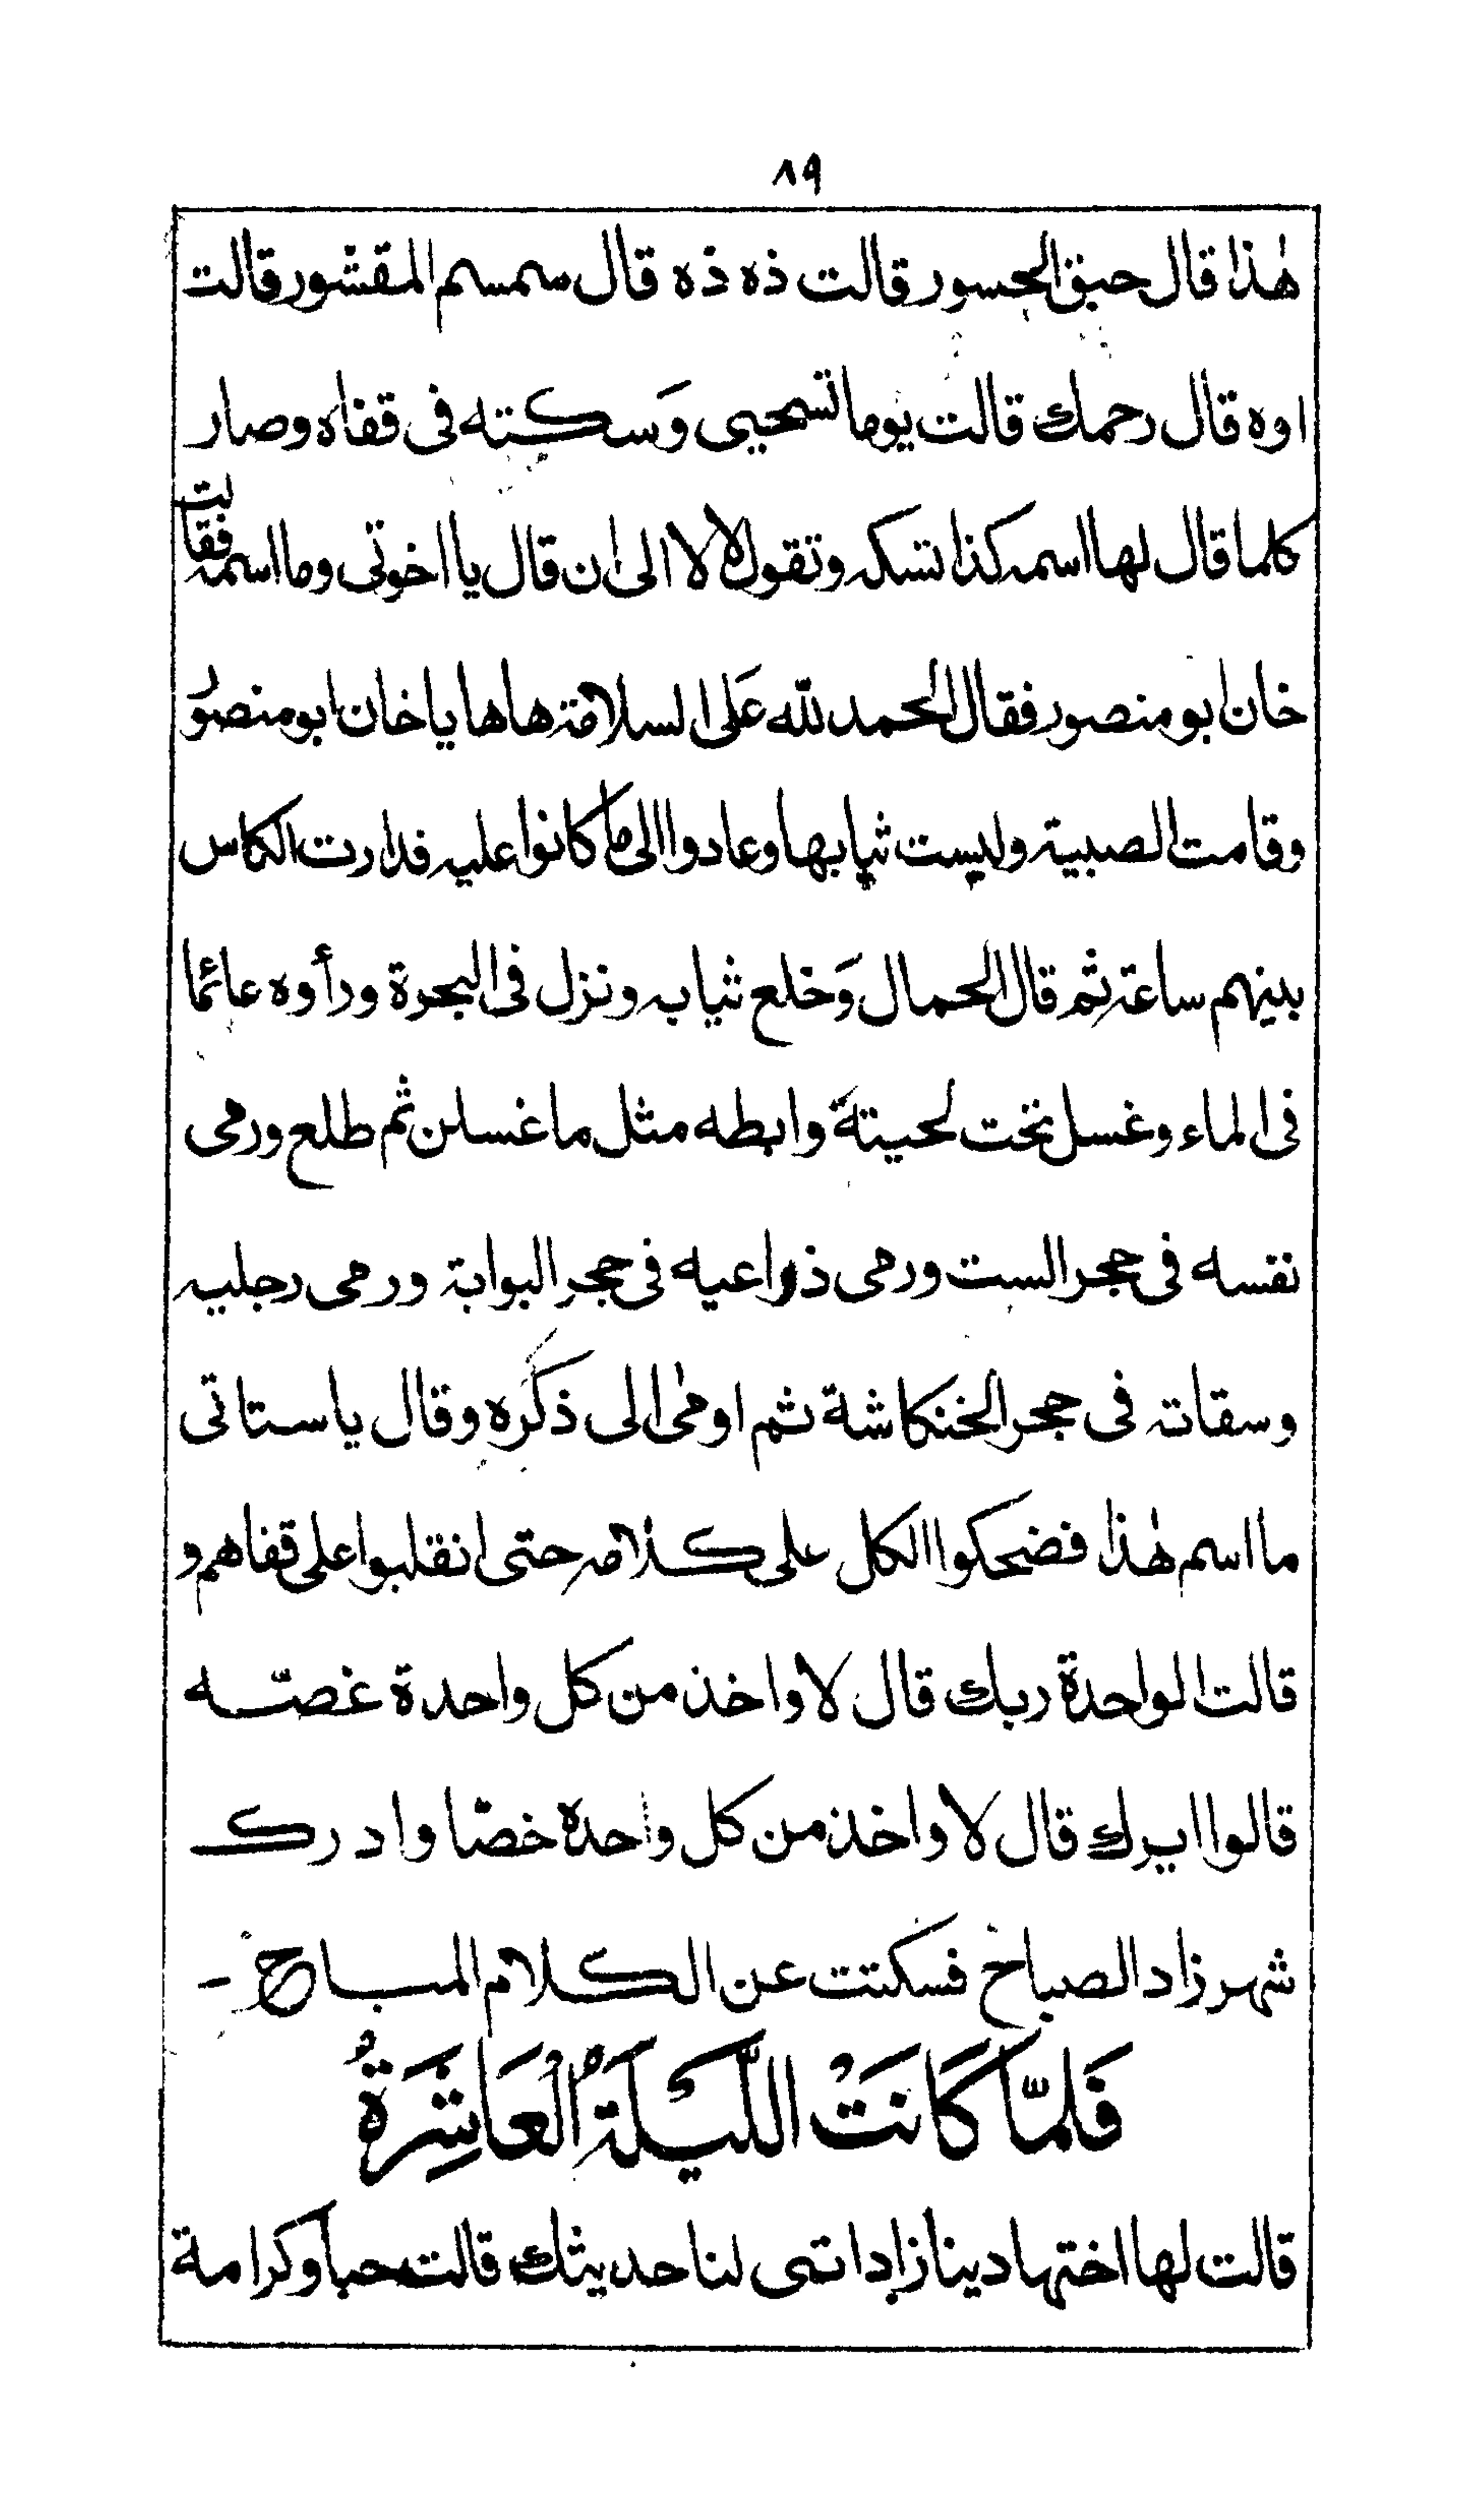 ٨٩
هٰذا قال حبق الجسور قالت ذه ذه قال سمسم المقشور قالت
اوه قال رحمك قالت يوما تسحيى وَسكته فى قفاه وصار
كلما قال لها اسمه كذا تسكه وتقول لا لا الى ان قال يا اخوتى وما اسمه فقالت
خان ابو منصور فقال الحمد لله عَلى السلامة ها ها يا خان ابو منصوُر
وقامت الصبية ولبست ثيابها وعادوا الى ما كانوا عليه فدارت الكاس
بينهم ساعة ثم قال الحمال وَخلع ثيابه ونزل فى البحرة ورأوه عائما
فى الماء وغسل تحت لحيته وابطه مثل ما غسلن ثم طلع ورمى
نفسه فى حجر الست ورمى ذراعيه فى حجر البوابة ورمى رجليه
وسقاته فى حجر الخنكاشة ثم اومى الى ذكره وقال يا ستاتى
ما اسم هٰذا فضحكوا الكل على كلامه حتى انقلبوا على قفاهم و
قالت الواحدة زبك قال لا واخذ من كل واحدة غصّه
قالوا ايرك قال لا واخذ من كل واحدة خصّا وادرك
شهرزاد الصباح فسكتت عن الكلام المباح -
فَلمَّا كَانَتُ اللَّيْلَةُ الْعَاشِرَةُ
قالت لها اختها دينازاد اتمى لنا حديثك قالت حبا وكرامة